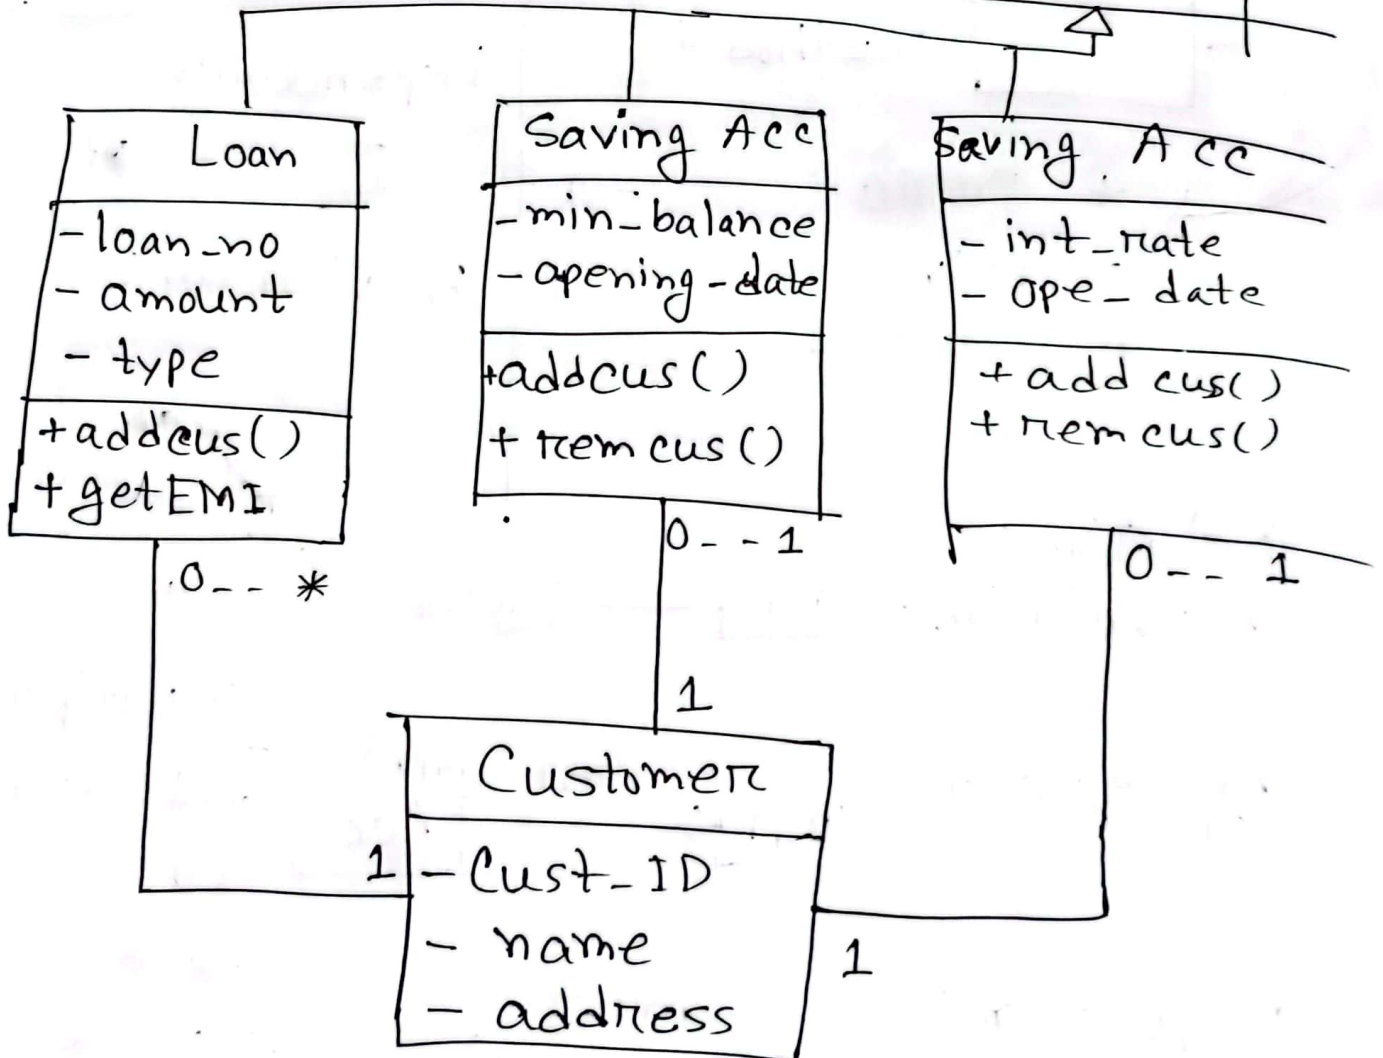 Loan
-loan_no
- amount
- type
+addcus()
+getEMI
0-- *
Saving Acc
-min_balance
-opening-date
+addcus()
+ remcus()
0--1
Saving Acc
- int_rate
- ope_date
+ add cus()
+ remcus()
0-- 1
1
Customer
1
- Cust_ID
- name
1
- address